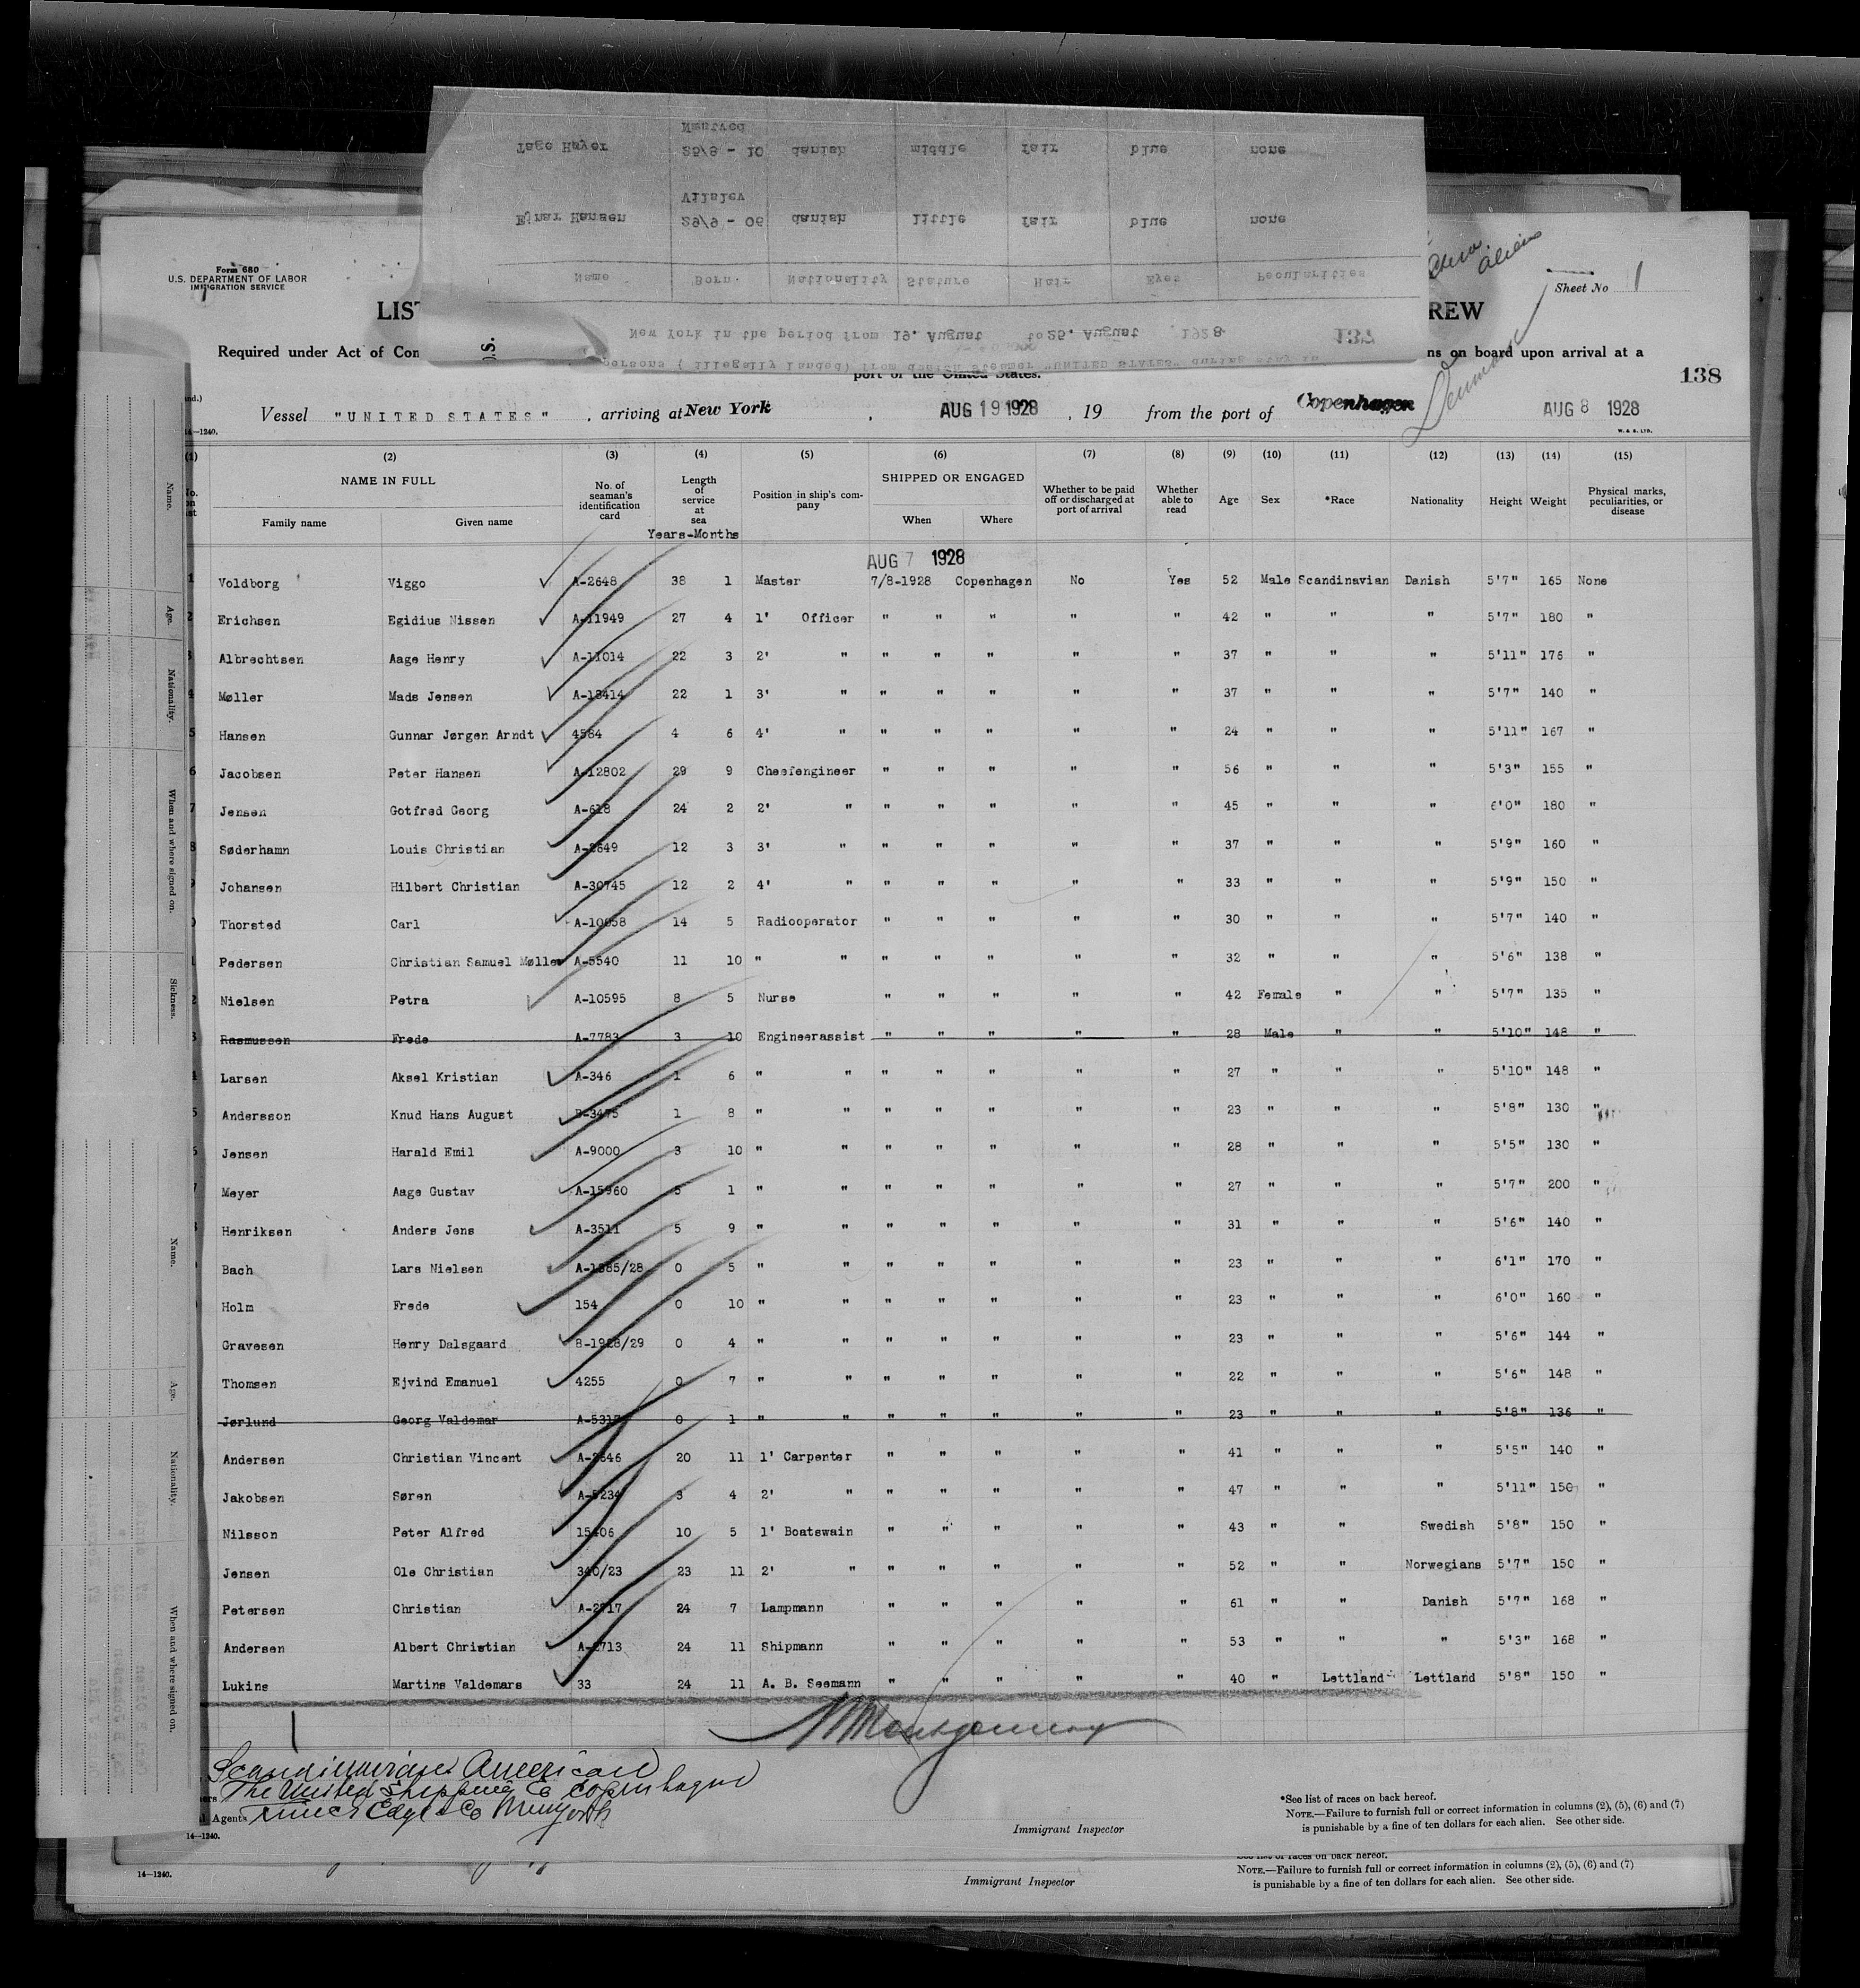 Tage Høyer 25/8 - 10 danish middle fair blue none
Ejnar Hansen 29/9 - 06 danish little fair blue none
Vilslev
Name Born. Nationality Stature Hair Eyes Peculiarities
New York in the period from 19. August to 25. August 1928.
137
persons ( illegally landed) from danish steamer "UNITED STATES" during stay in
Form 680
U.S. DEPARTMENT OF LABOR
IMMIGRATION SERVICE
aliens
Sheet No 1
LIS REW
Required under Act of Con ns on board upon arrival at a
port of the United States.
138
Vessel "UNITED STATES" , arriving at New York , AUG 19 1928 , 19 from the port of Copenhagen Denmark AUG 8 1928
14—1240.
W. & B. LTD.
(1) (2) (3) (4) (5) (6) (7) (8) (9) (10) (11) (12) (13) (14) (15)
NAME IN FULL
Family name Given name
No. of seaman's identification card
Length of service at sea
Years-Months
Position in ship's company
SHIPPED OR ENGAGED
When Where
Whether to be paid off or discharged at port of arrival
Whether able to read
Age Sex *Race Nationality Height Weight
Physical marks, peculiarities, or disease
AUG 7 1928
1 Voldborg Viggo A-2648 38 1 Master 7/8-1928 Copenhagen No Yes 52 Male Scandinavian Danish 5'7" 165 None
2 Erichsen Egidius Nissen A-11949 27 4 1' Officer " " " " " 42 " " " 5'7" 180 "
3 Albrechtsen Aage Henry A-11014 22 3 2' " " " " " " 37 " " " 5'11" 176 "
4 Møller Mads Jensen A-13414 22 1 3' " " " " " " 37 " " " 5'7" 140 "
5 Hansen Gunnar Jørgen Arndt 4564 4 6 4' " " " " " " 24 " " " 5'11" 167 "
6 Jacobsen Peter Hansen A-12802 29 9 Cheefengineer " " " " " 56 " " " 5'3" 155 "
7 Jensen Gotfred Georg A-618 24 2 2' " " " " " " 45 " " " 6'0" 180 "
8 Søderhamn Louis Christian A-2649 12 3 3' " " " " " " 37 " " " 5'9" 160 "
Johansen Hilbert Christian A-30745 12 2 4' " " " " " " 33 " " " 5'9" 150 "
Thorsted Carl A-10658 14 5 Radiooperator " " " " " 30 " " " 5'7" 140 "
Pedersen Christian Samuel Møller A-5540 11 10 " " " " " " " 32 " " " 5'6" 138 "
Nielsen Petra A-10595 8 5 Nurse " " " " " 42 Female " " 5'7" 135 "
Rasmussen Frede A-7783 3 10 Engineerassist " " " " " 28 Male " " 5'10" 148 "
Larsen Aksel Kristian A-346 1 6 " " " " " " " 27 " " " 5'10" 148 "
Andersson Knud Hans August B-3475 1 8 " " " " " " " 23 " " " 5'8" 130 "
Jensen Harald Emil A-9000 3 10 " " " " " " " 28 " " " 5'5" 130 "
Meyer Aage Gustav A-15960 5 1 " " " " " " " 27 " " " 5'7" 200 "
Henriksen Anders Jens A-3511 5 9 " " " " " " " 31 " " " 5'6" 140 "
Bach Lars Nielsen A-1385/28 0 5 " " " " " " " 23 " " " 6'1" 170 "
Holm Frede 154 0 10 " " " " " " " 23 " " " 6'0" 160 "
Gravesen Henry Dalsgaard 8-1928/29 0 4 " " " " " " " 23 " " " 5'6" 144 "
Thomsen Ejvind Emanuel 4255 0 7 " " " " " " " 22 " " " 5'6" 148 "
Jørlund Georg Valdemar 0 1 " " " " " " " 23 " " " 5'8" 136 "
Andersen Christian Vincent A-2646 20 11 1' Carpenter " " " " " 41 " " " 5'5" 140 "
Jakobsen Søren A-5234 3 4 2' " " " " " " 47 " " " 5'11" 150 "
Nilsson Peter Alfred 15406 10 5 1' Boatswain " " " " " 43 " " Swedish 5'8" 150 "
Jensen Ole Christian 340/23 23 11 2' " " " " " " 52 " " Norwegians 5'7" 150 "
Petersen Christian A-2717 24 7 Lampmann " " " " " 61 " " Danish 5'7" 168 "
Andersen Albert Christian A-2713 24 11 Shipmann " " " " " 53 " " " 5'3" 168 "
Lukins Martins Valdemars 33 24 11 A. B. Seemann " " " " " 40 " Lettland Lettland 5'8" 150 "
Montgomery
Scandinavian American
The United Shipping Co Copenhagen
Agents Edye & Co New York
14—1240.
Immigrant Inspector
*See list of races on back hereof.
NOTE.—Failure to furnish full or correct information in columns (2), (5), (6) and (7)
is punishable by a fine of ten dollars for each alien. See other side.
14—1240.
Immigrant Inspector
See list of races on back hereof.
NOTE.—Failure to furnish full or correct information in columns (2), (5), (6) and (7)
is punishable by a fine of ten dollars for each alien. See other side.
Name.
Age.
Nationality.
When and where signed on.
Sickness.
Name.
Age.
Nationality.
When and where signed on.